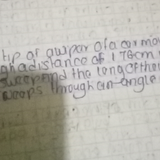 tip of a wiper of a car mov
gh a distance of 176cm
and the length of the
weeps through an angle